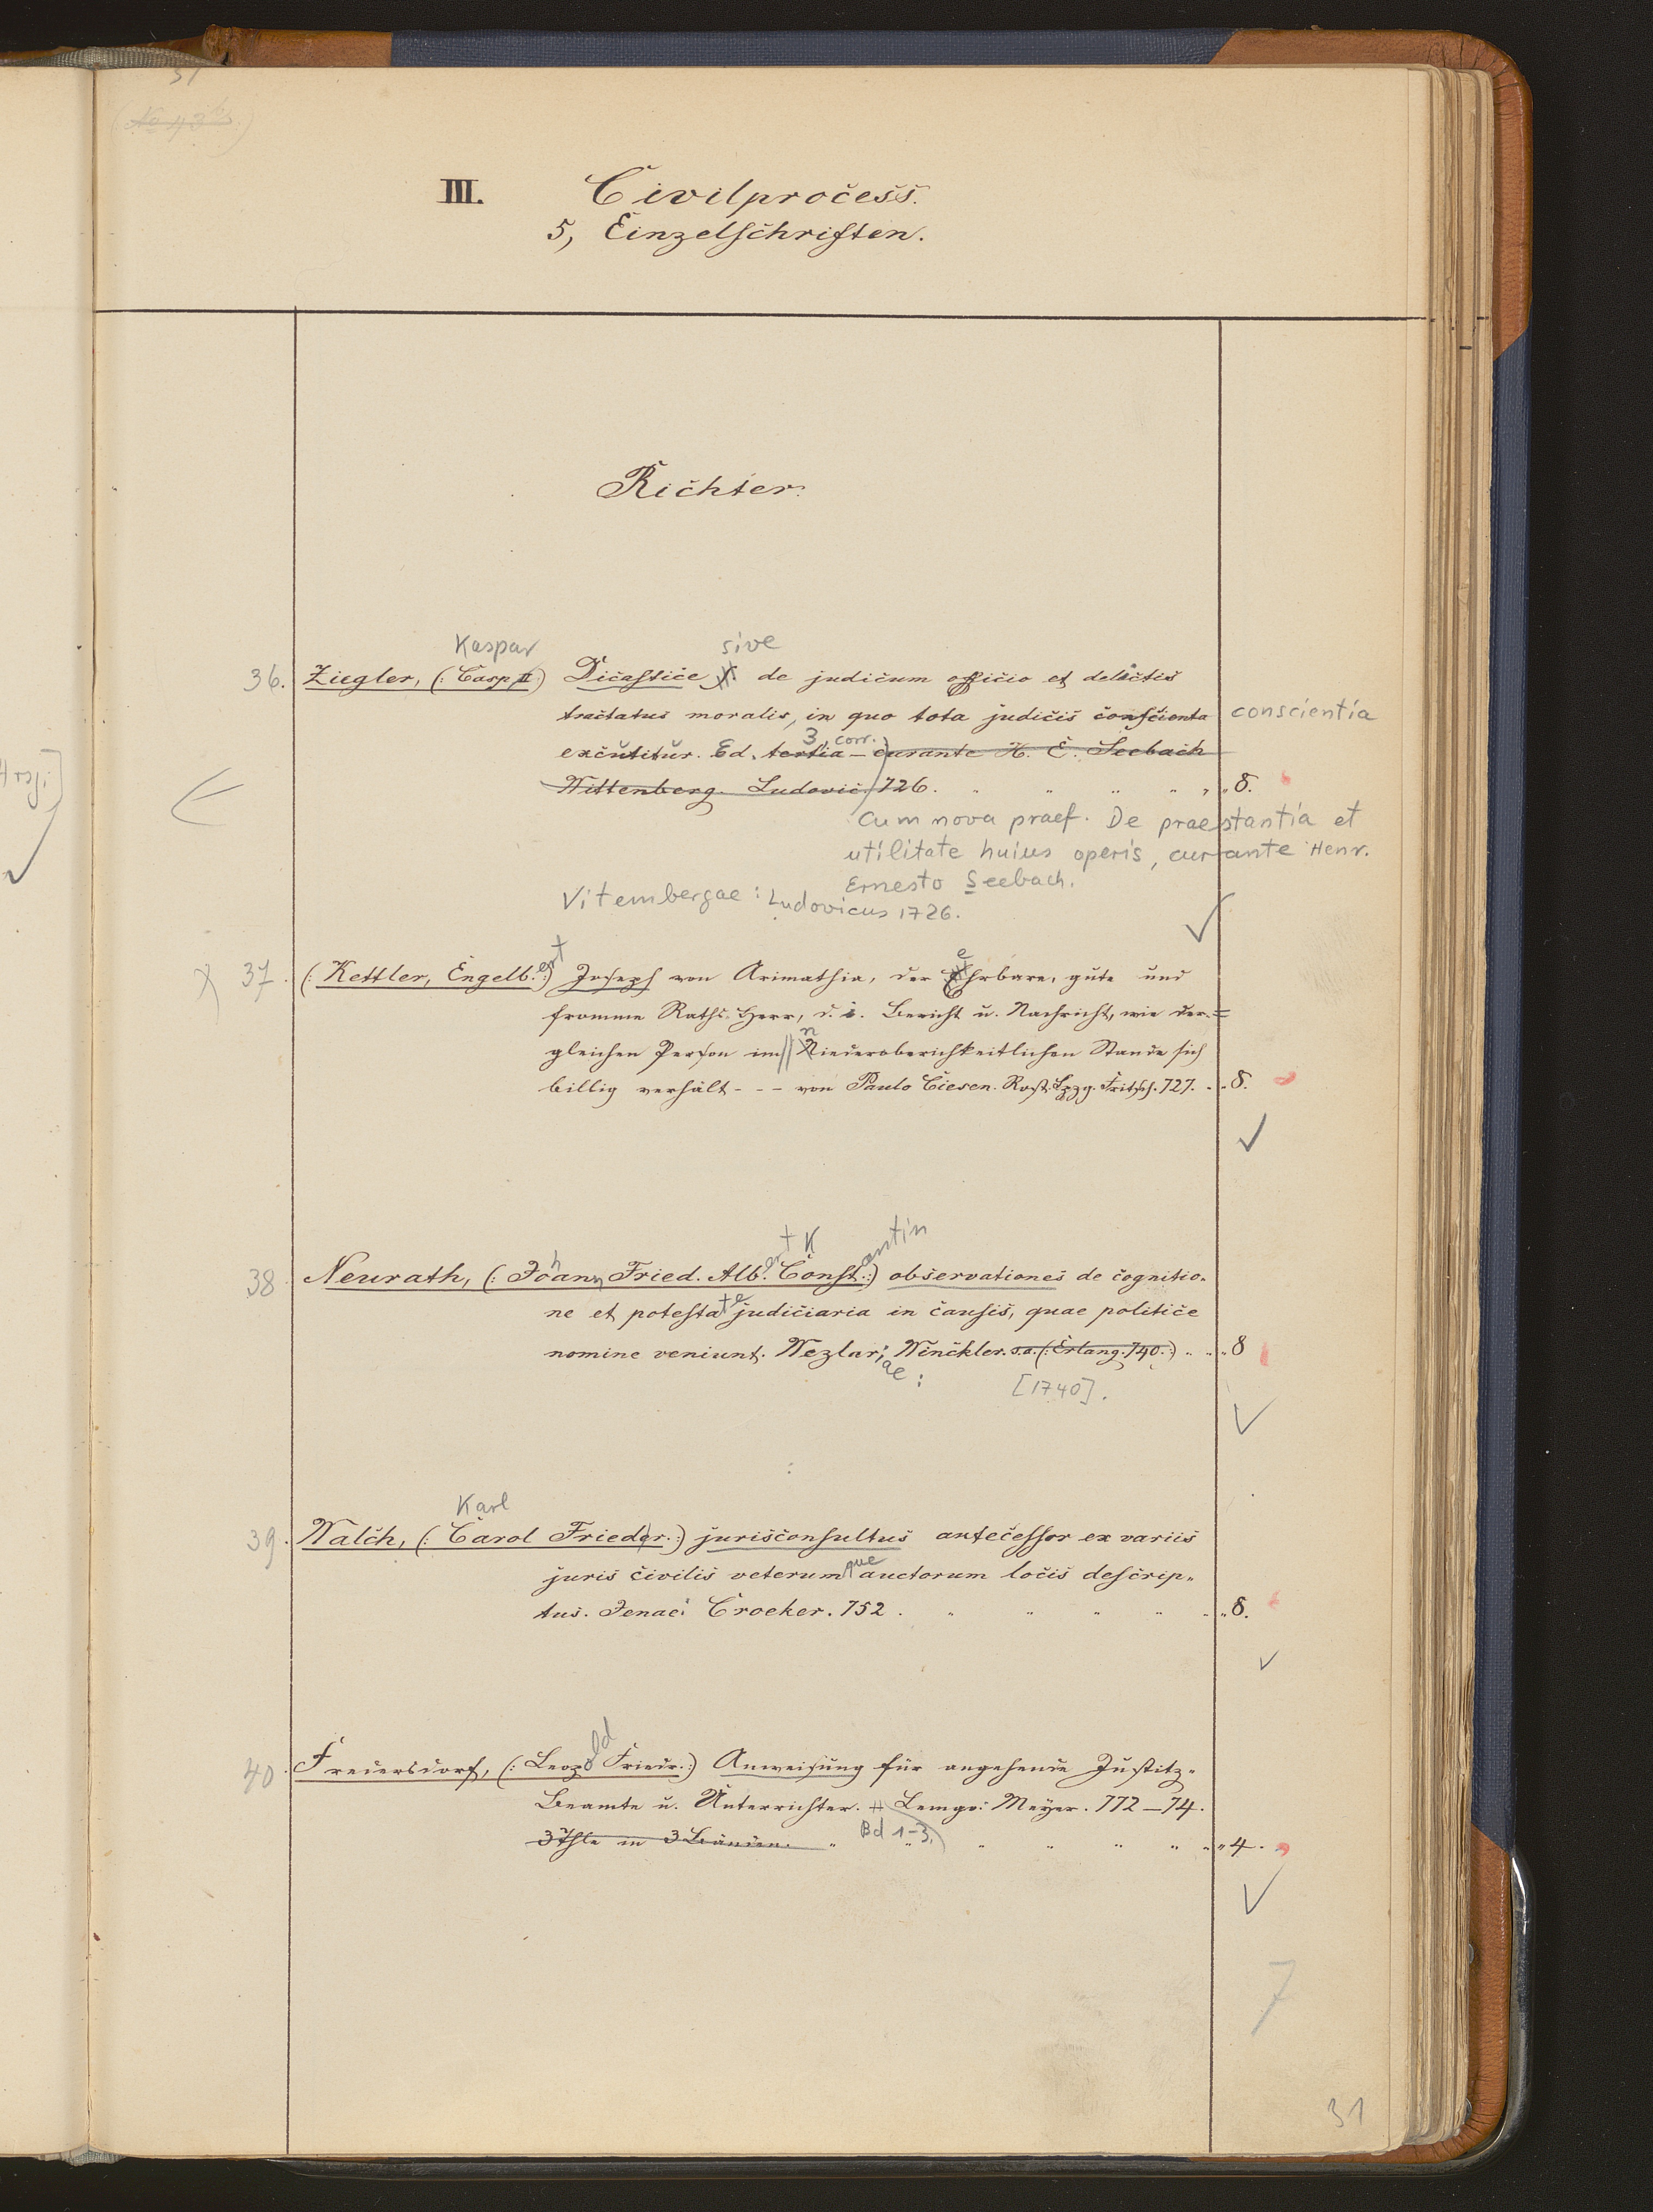 III. Civilprocess.
5, Einzelschriften.
Richter.
Kaspar sive
36. Ziegler, (: Casp :) Dicastice de judicum officio et delictis
tractatus moralis, in quo tota judicis conscienta conscientia
3, corr.
excutitur. Ed. tertia - curante H. E. Seebach
Wittenberg. Ludovic. 726. 8.
Cum nova praef. De praestantia et
utilitate huius operis, curante Henr.
Ernesto Seebach.
Vitembergae: Ludovicus 1726.
37. (: Kettler, Engelb.ert :) Joseph von Arimathia, der Ehrbare, gute und
fromme Raths-Herr, d. i. Bericht u. Nachricht, wie der-
gleichen Person im Niederoberichkeitlichen Stande sich
billig verhält - - - von Paulo Ciesen. Rost. Lpzg. Fritsch. 727. 8.
ert K antin
38 Neurath, (: Johann Fried. Alb. Const. :) observationes de cognitio-
ne et potestate judiciaria in causis, quae politice
nomine veniunt. Wezlar; Winckler. s.a. (: Erlang. 740. :) 8
ae: [1740].
Karl
39. Walch, (: Carol Frieder. :) jurisconsultus antecessor ex variis
juris civilis veterumque auctorum locis descrip-
tus. Jenae: Croeker. 752. 8.
40. Freiersdorf, (: Leopold Friedr. :) Anweisung für angehende Justitz-
Beamte u. Unterrichter. Lemgo: Meyer. 772-74.
3 Thle in 3 Bänden. Bd 1-3. 4.
7
31